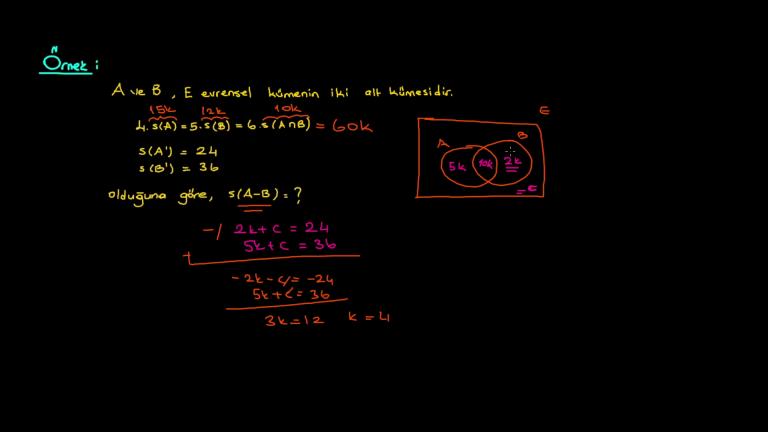 Örnek :
A ve B , E evrensel kümenin iki alt kümesidir.
15k 12k 10k
4. s(A) = 5. s(B) = 6. s(A∩B) = 60k
s(A') = 24
s(B') = 36
olduğuna göre, s(A-B) = ?
-/ 2k + c = 24
5k + c = 36
+
-2k - c = -24
5k + c = 36
3k = 12 k = 4
E
A B
5k 10k 2k
= c